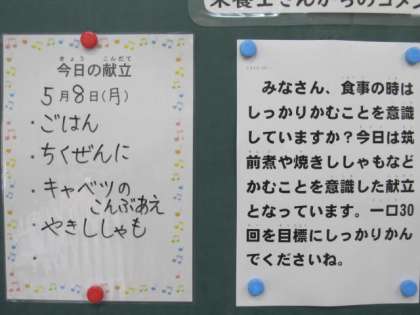 栄養士さんからのコメント
きょう こんだて
今日の献立
5月8日(月)
・ごはん
・ちくぜんに
・キャベツの
こんぶあえ
・やきししゃも
・
みなさん、食事の時は
しっかりかむことを意識
していますか?今日は筑
前煮や焼きししゃもなど
かむことを意識した献立
となっています。一口30
回を目標にしっかりかん
でくださいね。